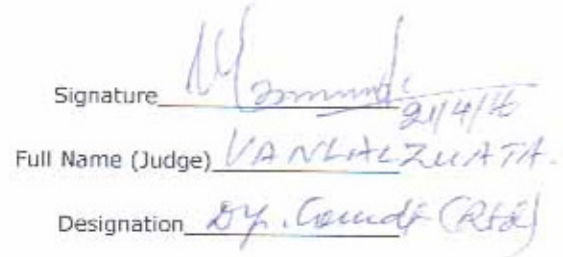 Signature
21/4/16
Full Name (Judge) VANLALZUATA.
Designation Dy. Comdt (Rtd)